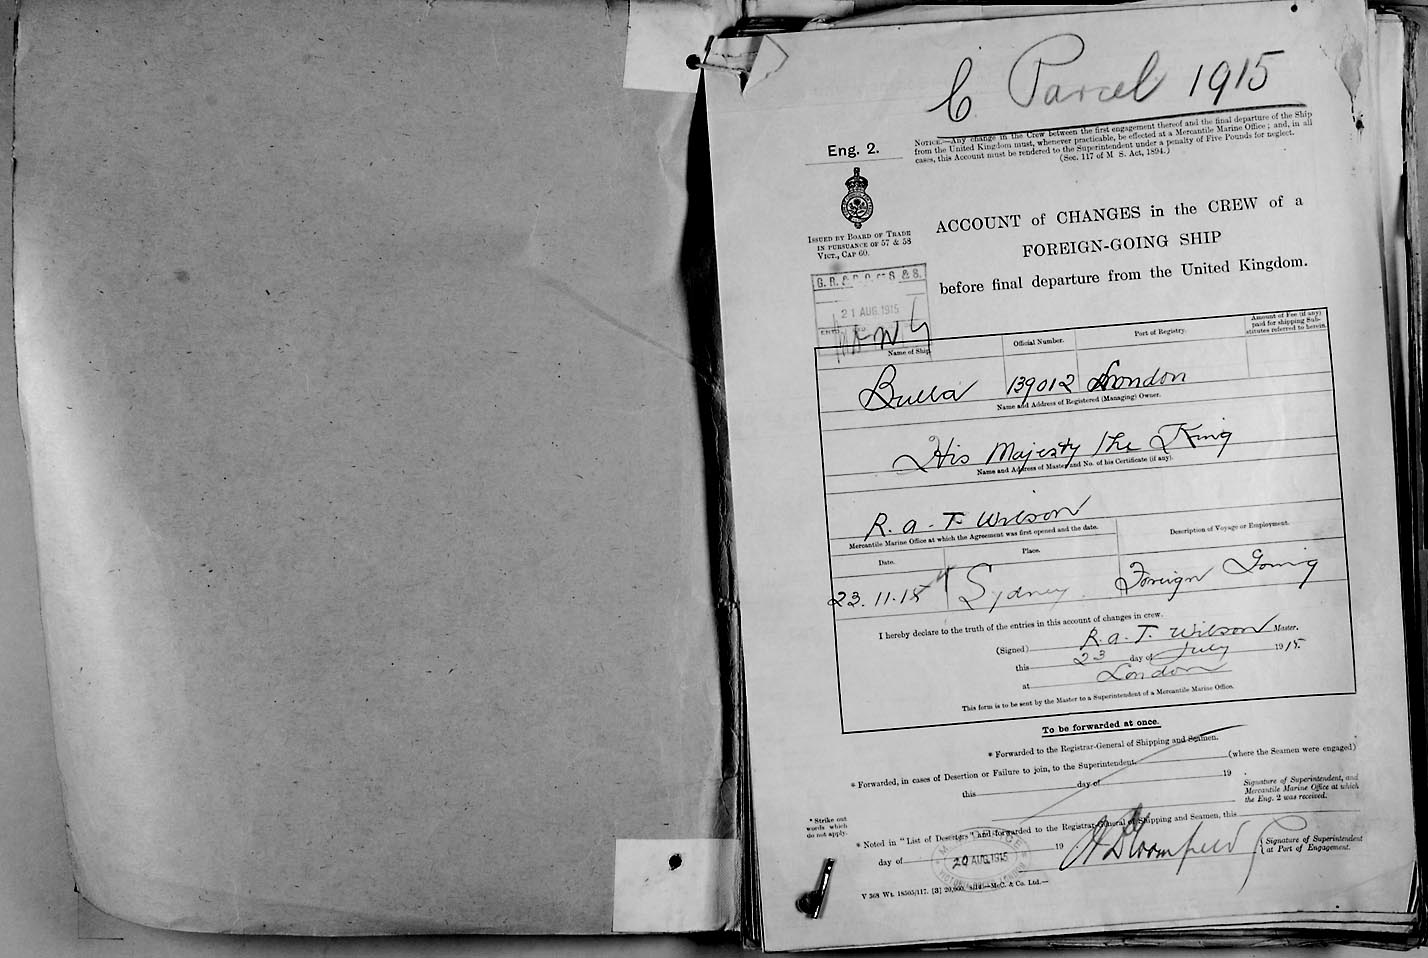 C Parcel 1915
Eng. 2.
NOTICE.—Any change in the Crew between the first engagement thereof and the final departure of the Ship
from the United Kingdom must, whenever practicable, be effected at a Mercantile Marine Office; and, in all
cases, this Account must be rendered to the Superintendent under a penalty of Five Pounds for neglect.
(Sec. 117 of M S. Act, 1894.)
ISSUED BY BOARD OF TRADE
IN PURSUANCE OF 57 & 58
VICT., CAP 60.
ACCOUNT of CHANGES in the CREW of a
FOREIGN-GOING SHIP
before final departure from the United Kingdom.
21 AUG. 1915
Name of Ship.
Official Number.
Port of Registry.
Amount of Fee (if any)
paid for shipping Sub-
stitutes referred to herein.
Bulla 139012 London
Name and Address of Registered (Managing) Owner.
His Majesty the King
Name and Address of Master and No. of his Certificate (if any).
R. A. T. Wilson
Mercantile Marine Office at which the Agreement was first opened and the date.
Description of Voyage or Employment.
Date.
Place.
23. 11. 14 Sydney. Foreign Going
I hereby declare to the truth of the entries in this account of changes in crew.
(Signed) R. A. T. Wilson Master.
this 23 day of July 1915.
at London
This form is to be sent by the Master to a Superintendent of a Mercantile Marine Office.
To be forwarded at once.
* Forwarded to the Registrar-General of Shipping and Seamen.
* Forwarded, in cases of Desertion or Failure to join, to the Superintendent (where the Seamen were engaged)
this day of 19 .
Signature of Superintendent, and
Mercantile Marine Office at which
the Eng. 2 was received.
* Strike out
words which
do not apply.
* Noted in "List of Deserters" and forwarded to the Registrar-General of Shipping and Seamen, this
day of 19
20 AUG. 1915
Signature of Superintendent
at Port of Engagement.
V 368 Wt. 18505/117. [3] 20,000. McC. & Co. Ltd.—